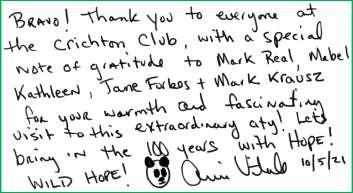 BRAVO! Thank you to everyone at
the Crichton Club, with a special
note of gratitude to Mark Real, Mabel
Kathleen, Jane Forbes + Mark Krausz
for your warmth and fascinating
visit to this extraordinary city! Let's
bring in the 100 years with HOPE!
WILD HOPE! 10/5/21